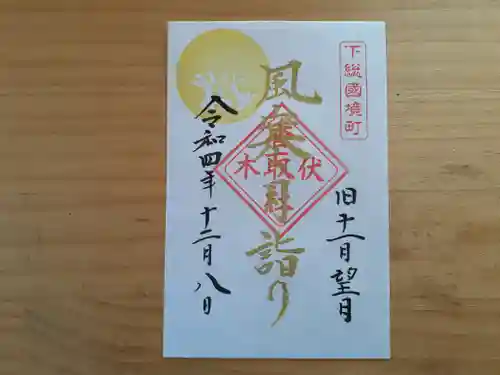 下総國境町
旧十一月望月
風 月詣り
伏木
取社
令和四年十二月八日